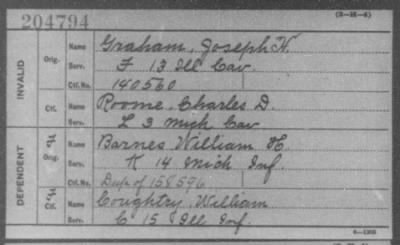 204794 (3-H-6)
INVALID
Orig. Name Graham, Joseph H.
Serv. F 13 Ill Cav.
Ctf. No. 140560
Ctf. Name Roome, Charles D.
Serv. L 3 Mich Cav
DEPENDENT
Orig. Name Barnes William H.
Serv. K 14 Mich Inf.
Ctf. No. Dup of 158596
Ctf. Name Coughtry, William
Serv. C 15 Ill Inf.